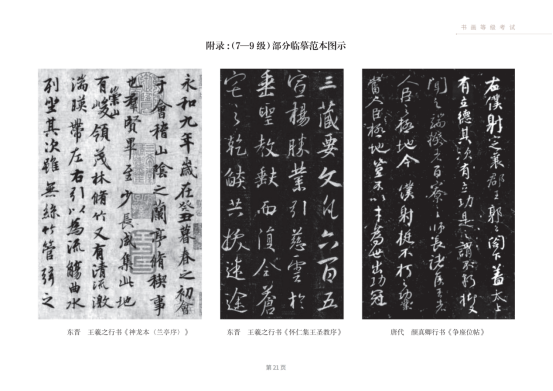 书画等级考试
附录:(7—9 级)部分临摹范本图示
永和九年歲在癸丑暮春之初會
于會稽山陰之蘭亭脩稧事
也群賢畢至少長咸集此地
有崇山峻領茂林脩竹又有清流激
湍暎帶左右引以為流觴曲水
列坐其次雖無絲竹管弦之
三藏要文凡六百五
宣揚勝業引慈雲於
垂聖教缺而復全蒼
宅之乾燄共拔迷途
右僕射定襄郡王郭公閤下蓋太上
有立德其次有立功是之謂不朽抑又
聞之端揆者百寮之師長諸侯王者
人臣之極地今僕射挺不朽之功業
當人臣極地豈不以才為世出功冠
东晋 王羲之行书《神龙本〈兰亭序〉》
东晋 王羲之行书《怀仁集王圣教序》
唐代 颜真卿行书《争座位帖》
第 21 页